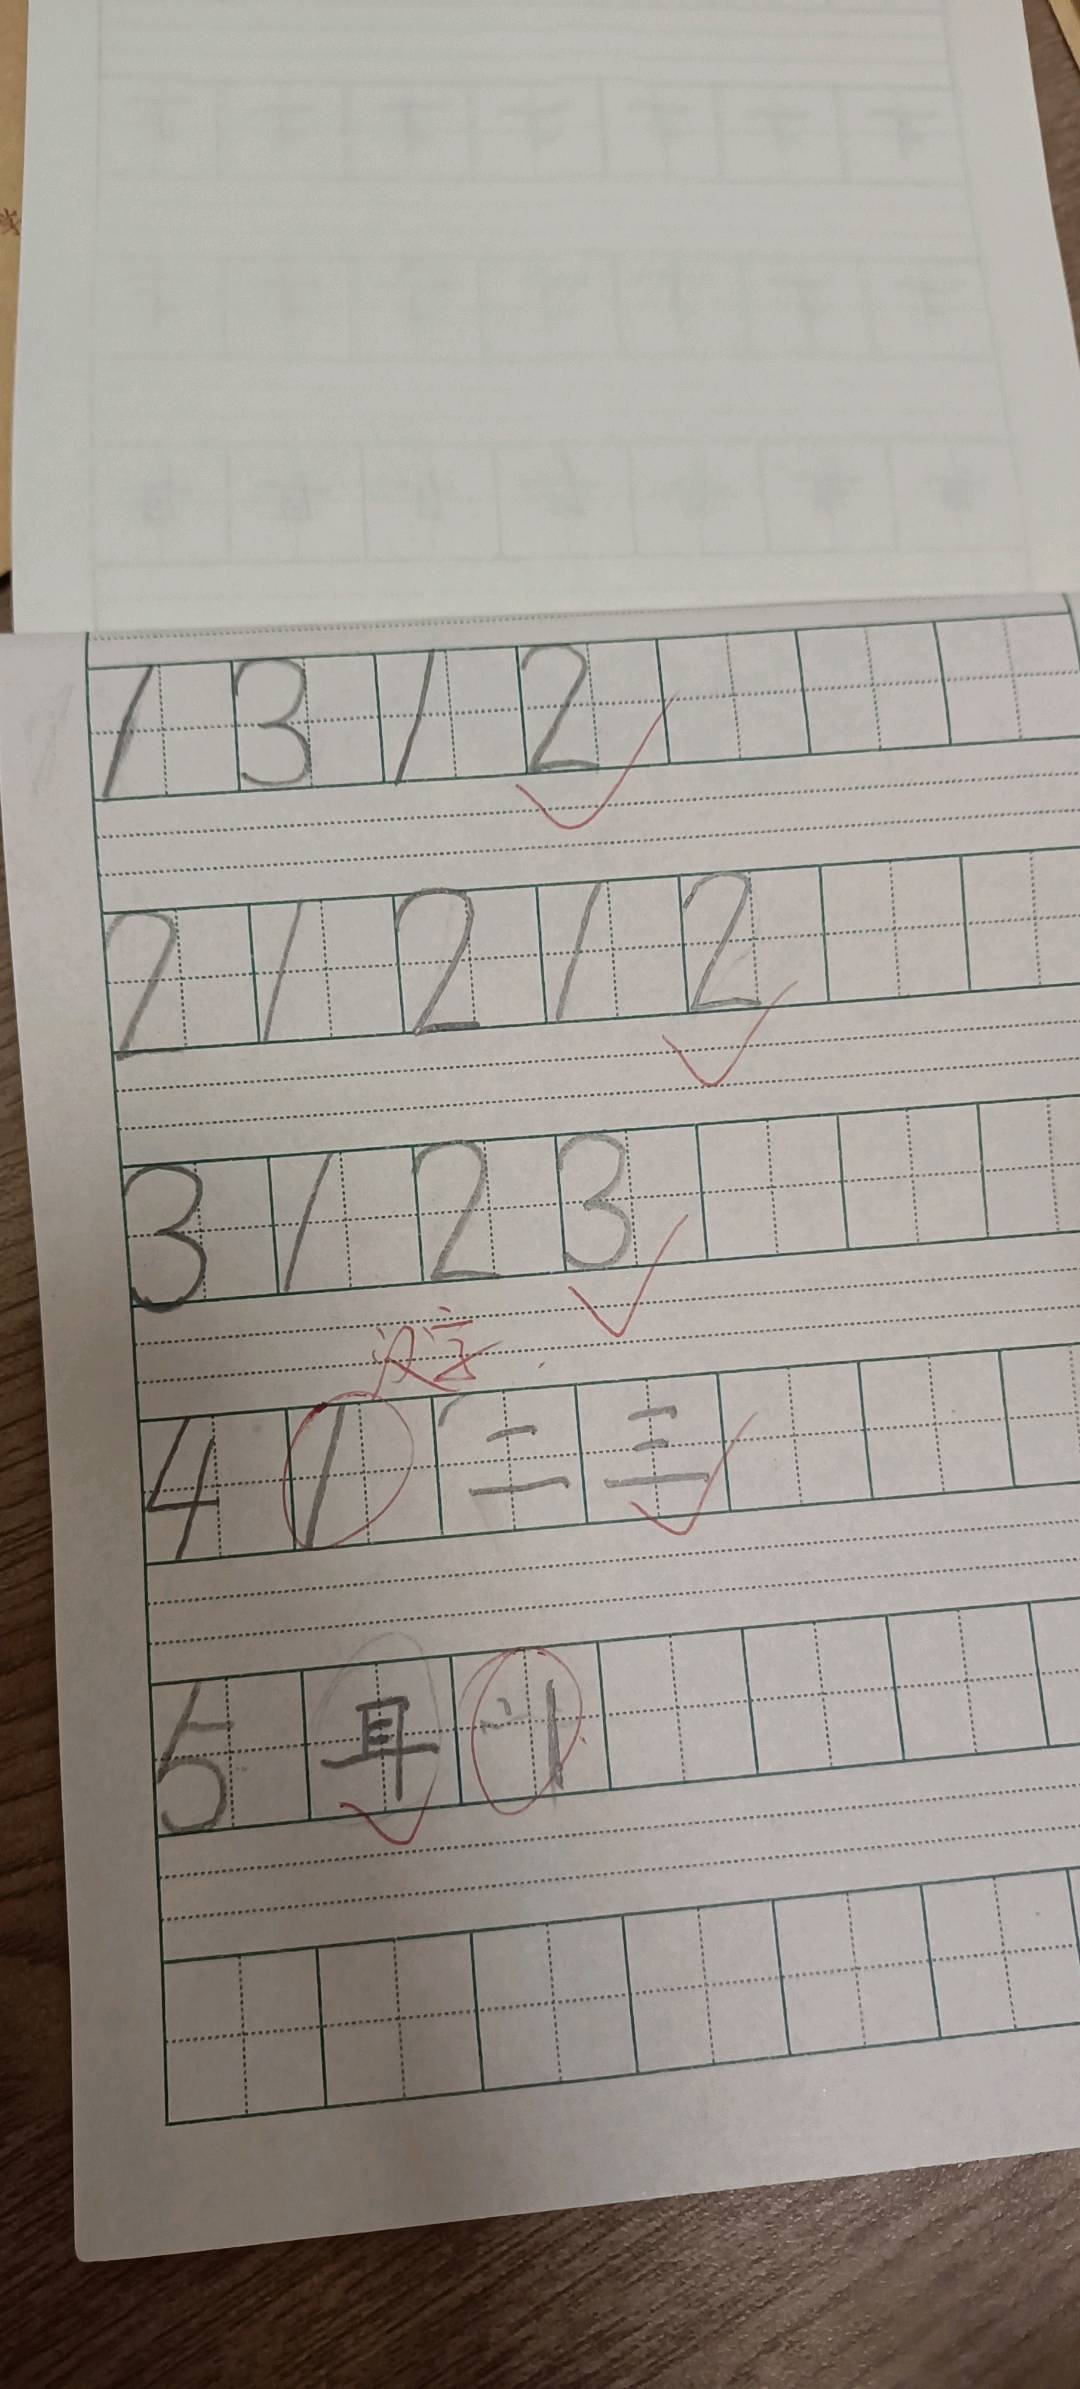 1 3 1 2
2 1 2 1 2
3 1 2 3
没写
4 1 二 三
5 耳